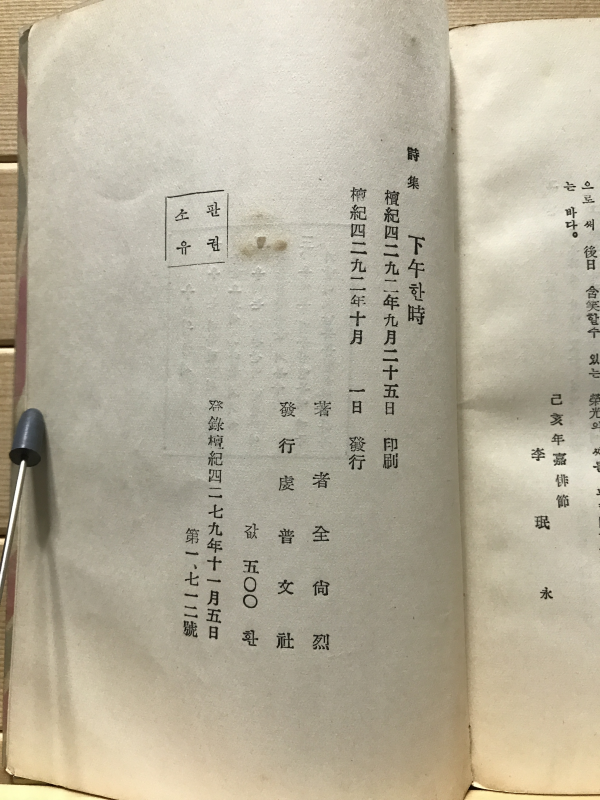 으로 써 後日 含笑할수 있는 榮光의
는 바다。
己亥年嘉俳節
李珉永
詩集 下午한時
檀紀四二九二年九月二十五日 印刷
檀紀四二九二年十月 一日 發行
著者 全尙烈
發行處 普文社
값 五〇〇 환
登錄檀紀四二七九年十一月五日
第一、七一二號
판권
소유